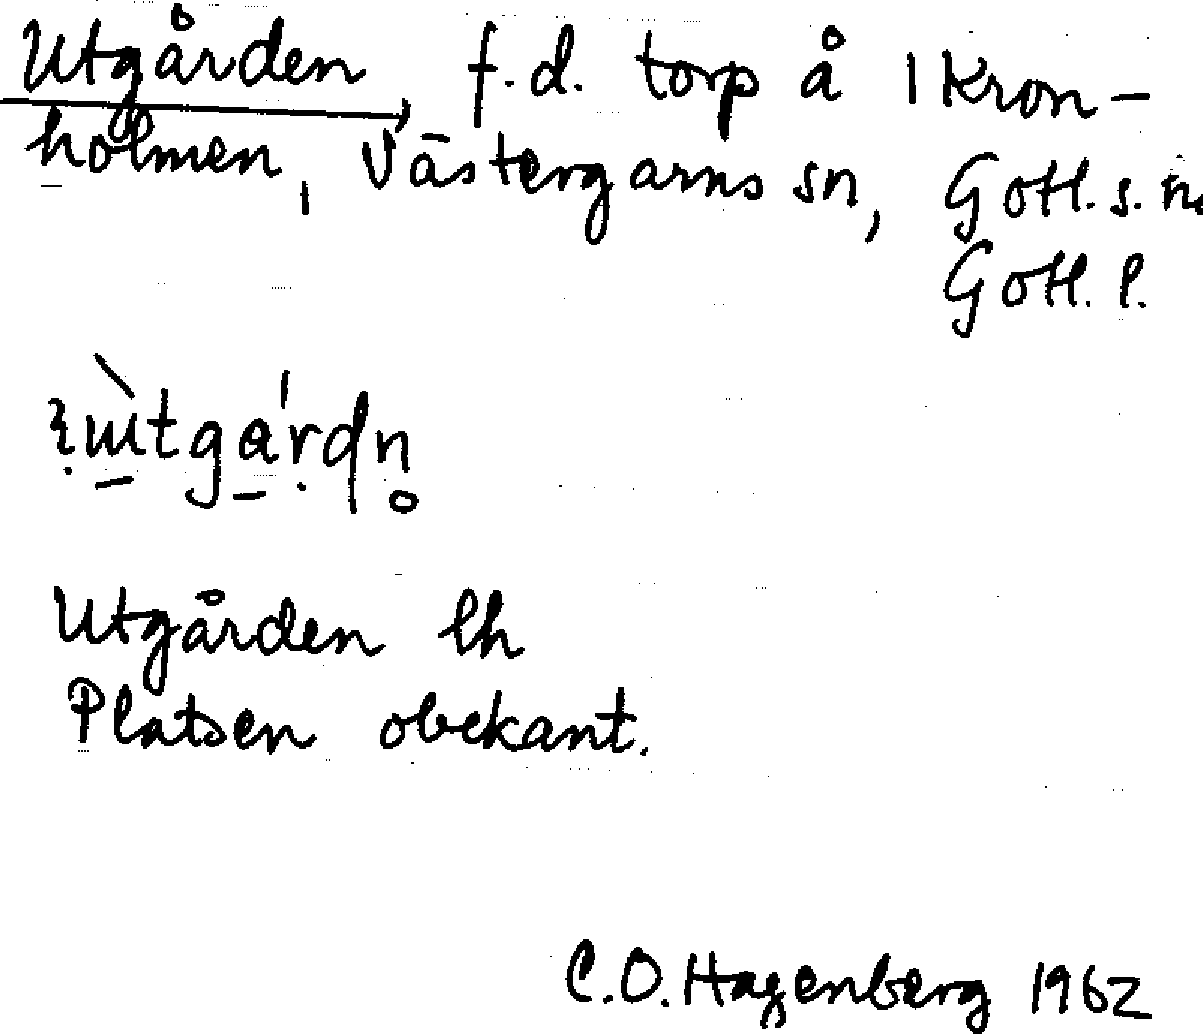 Utgården, f.d. torp å Kron-
holmen, Västergarns sn, Gotl. s.
Gotl. l.
Utgården lh
Platsen obekant.
C.O. Hagenberg 1962